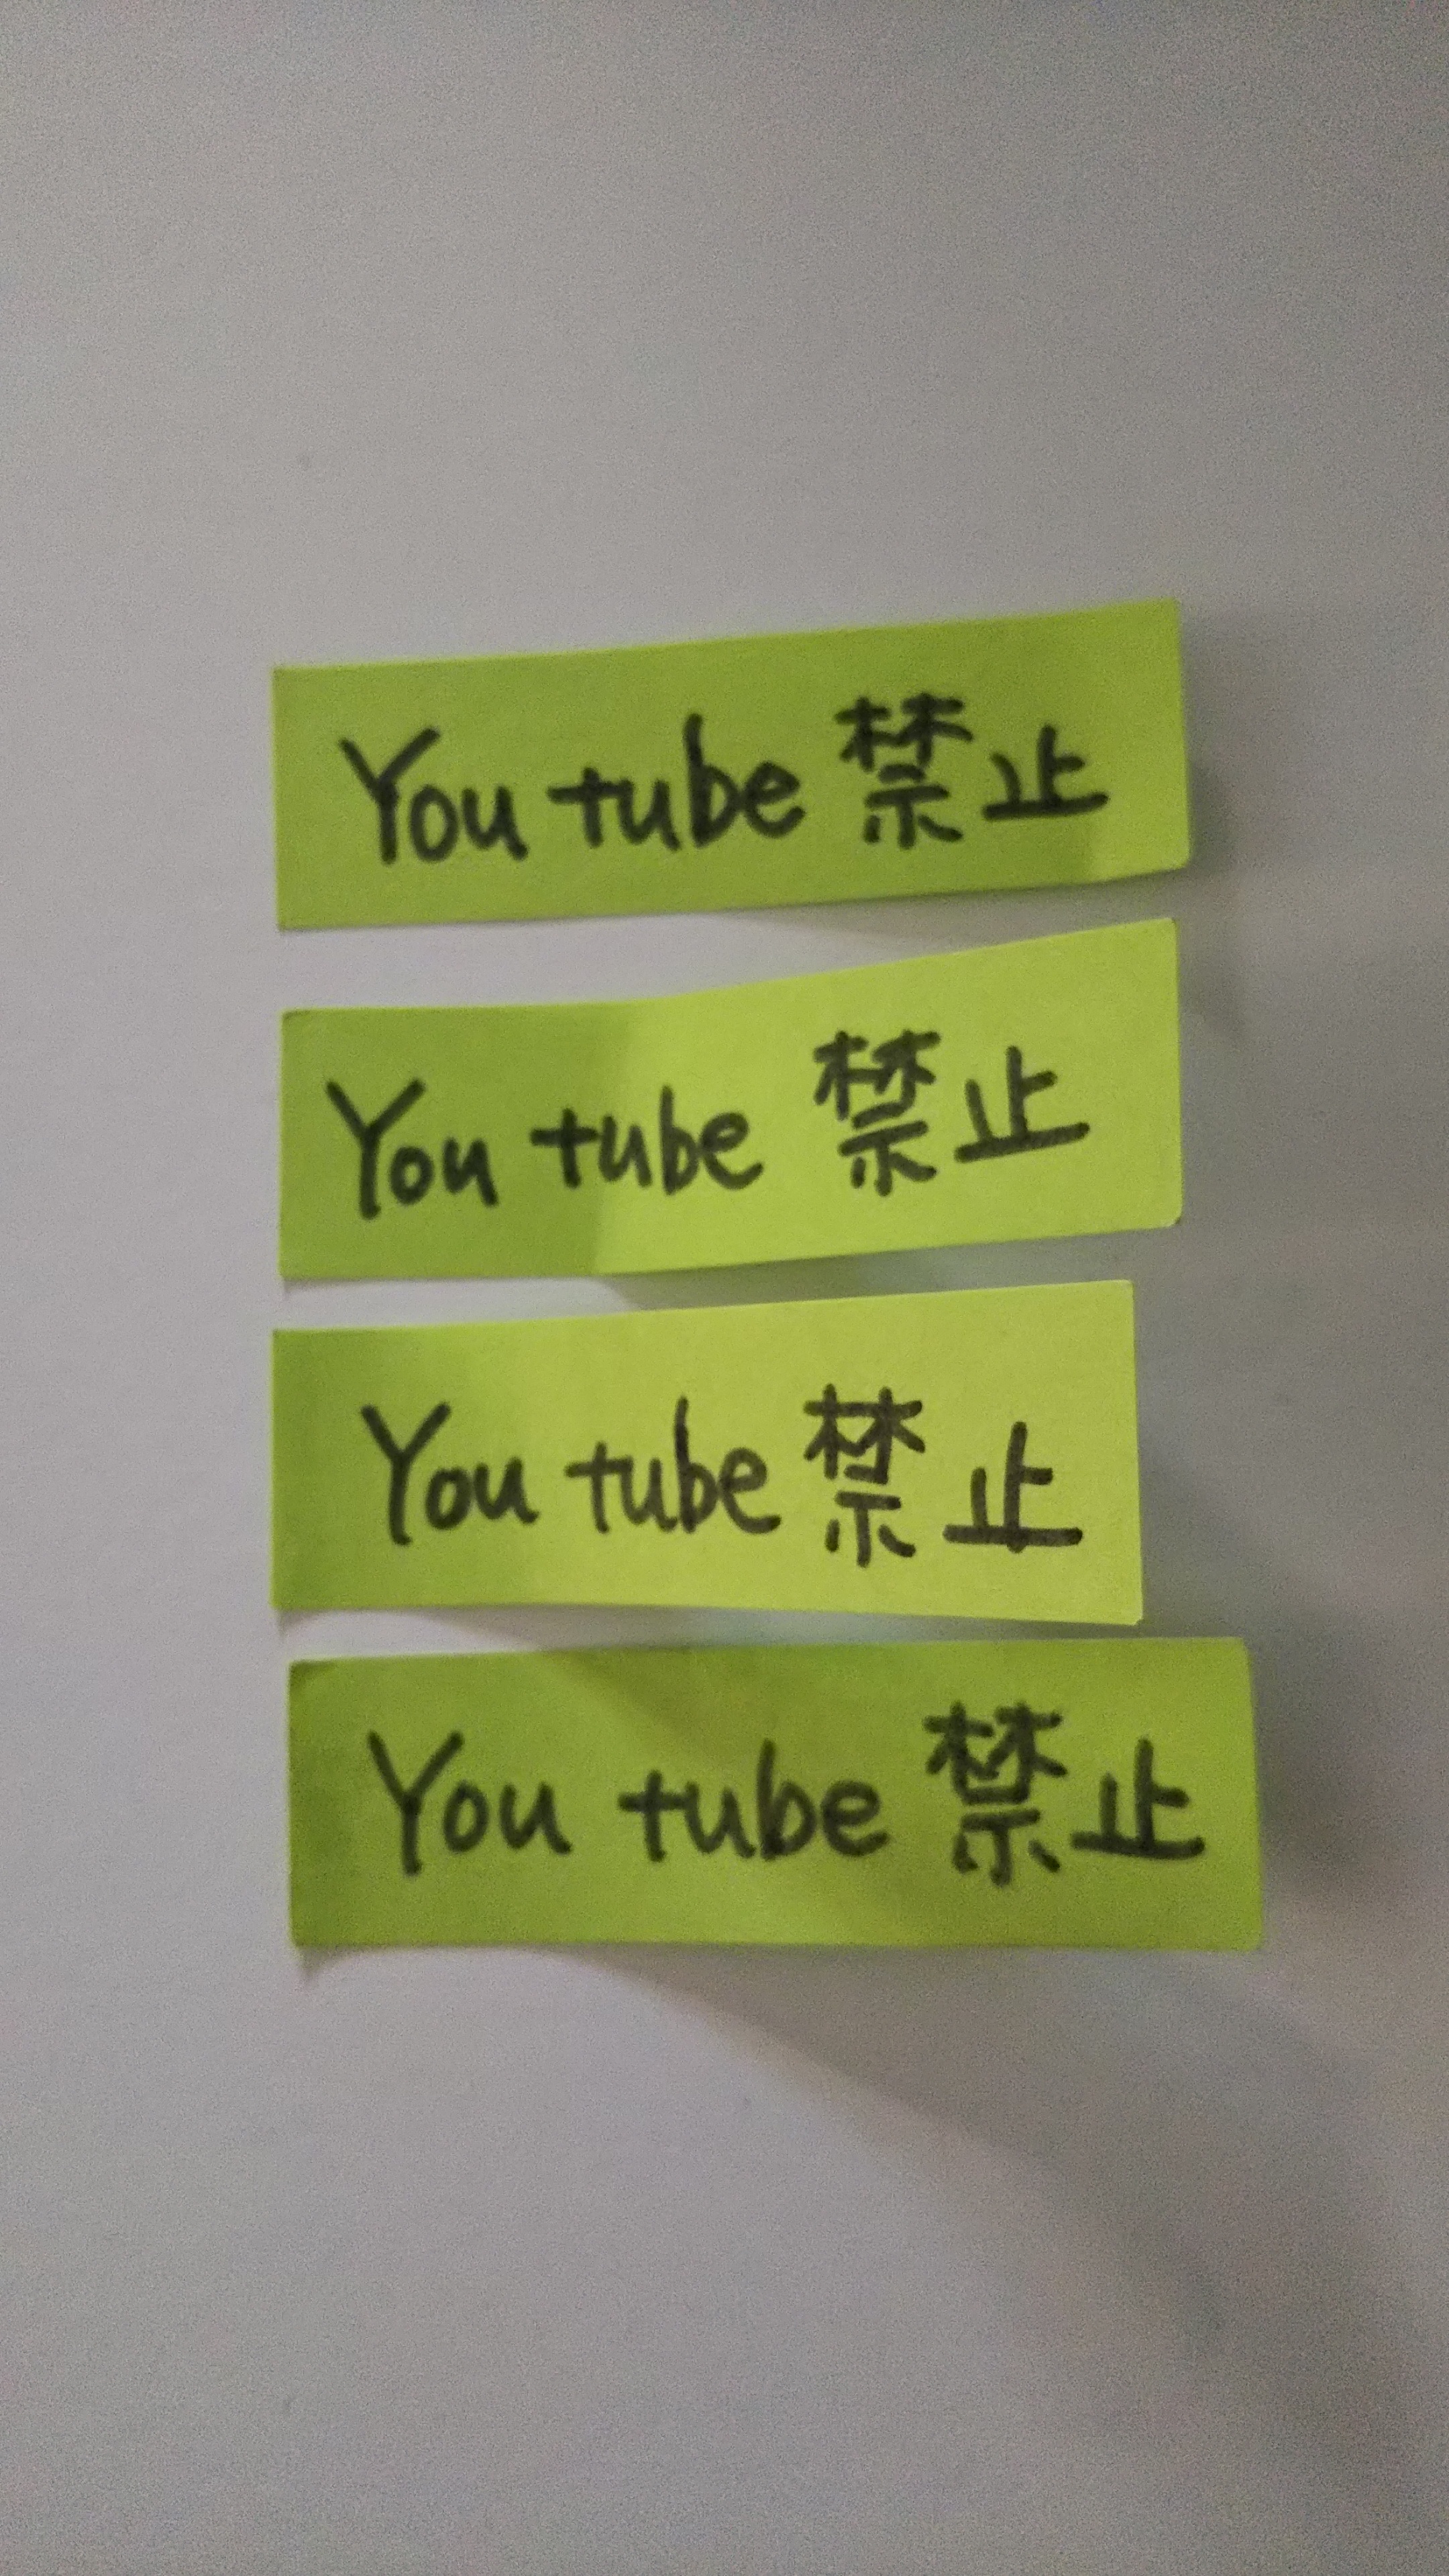 You tube 禁止
You tube 禁止
You tube 禁止
You tube 禁止